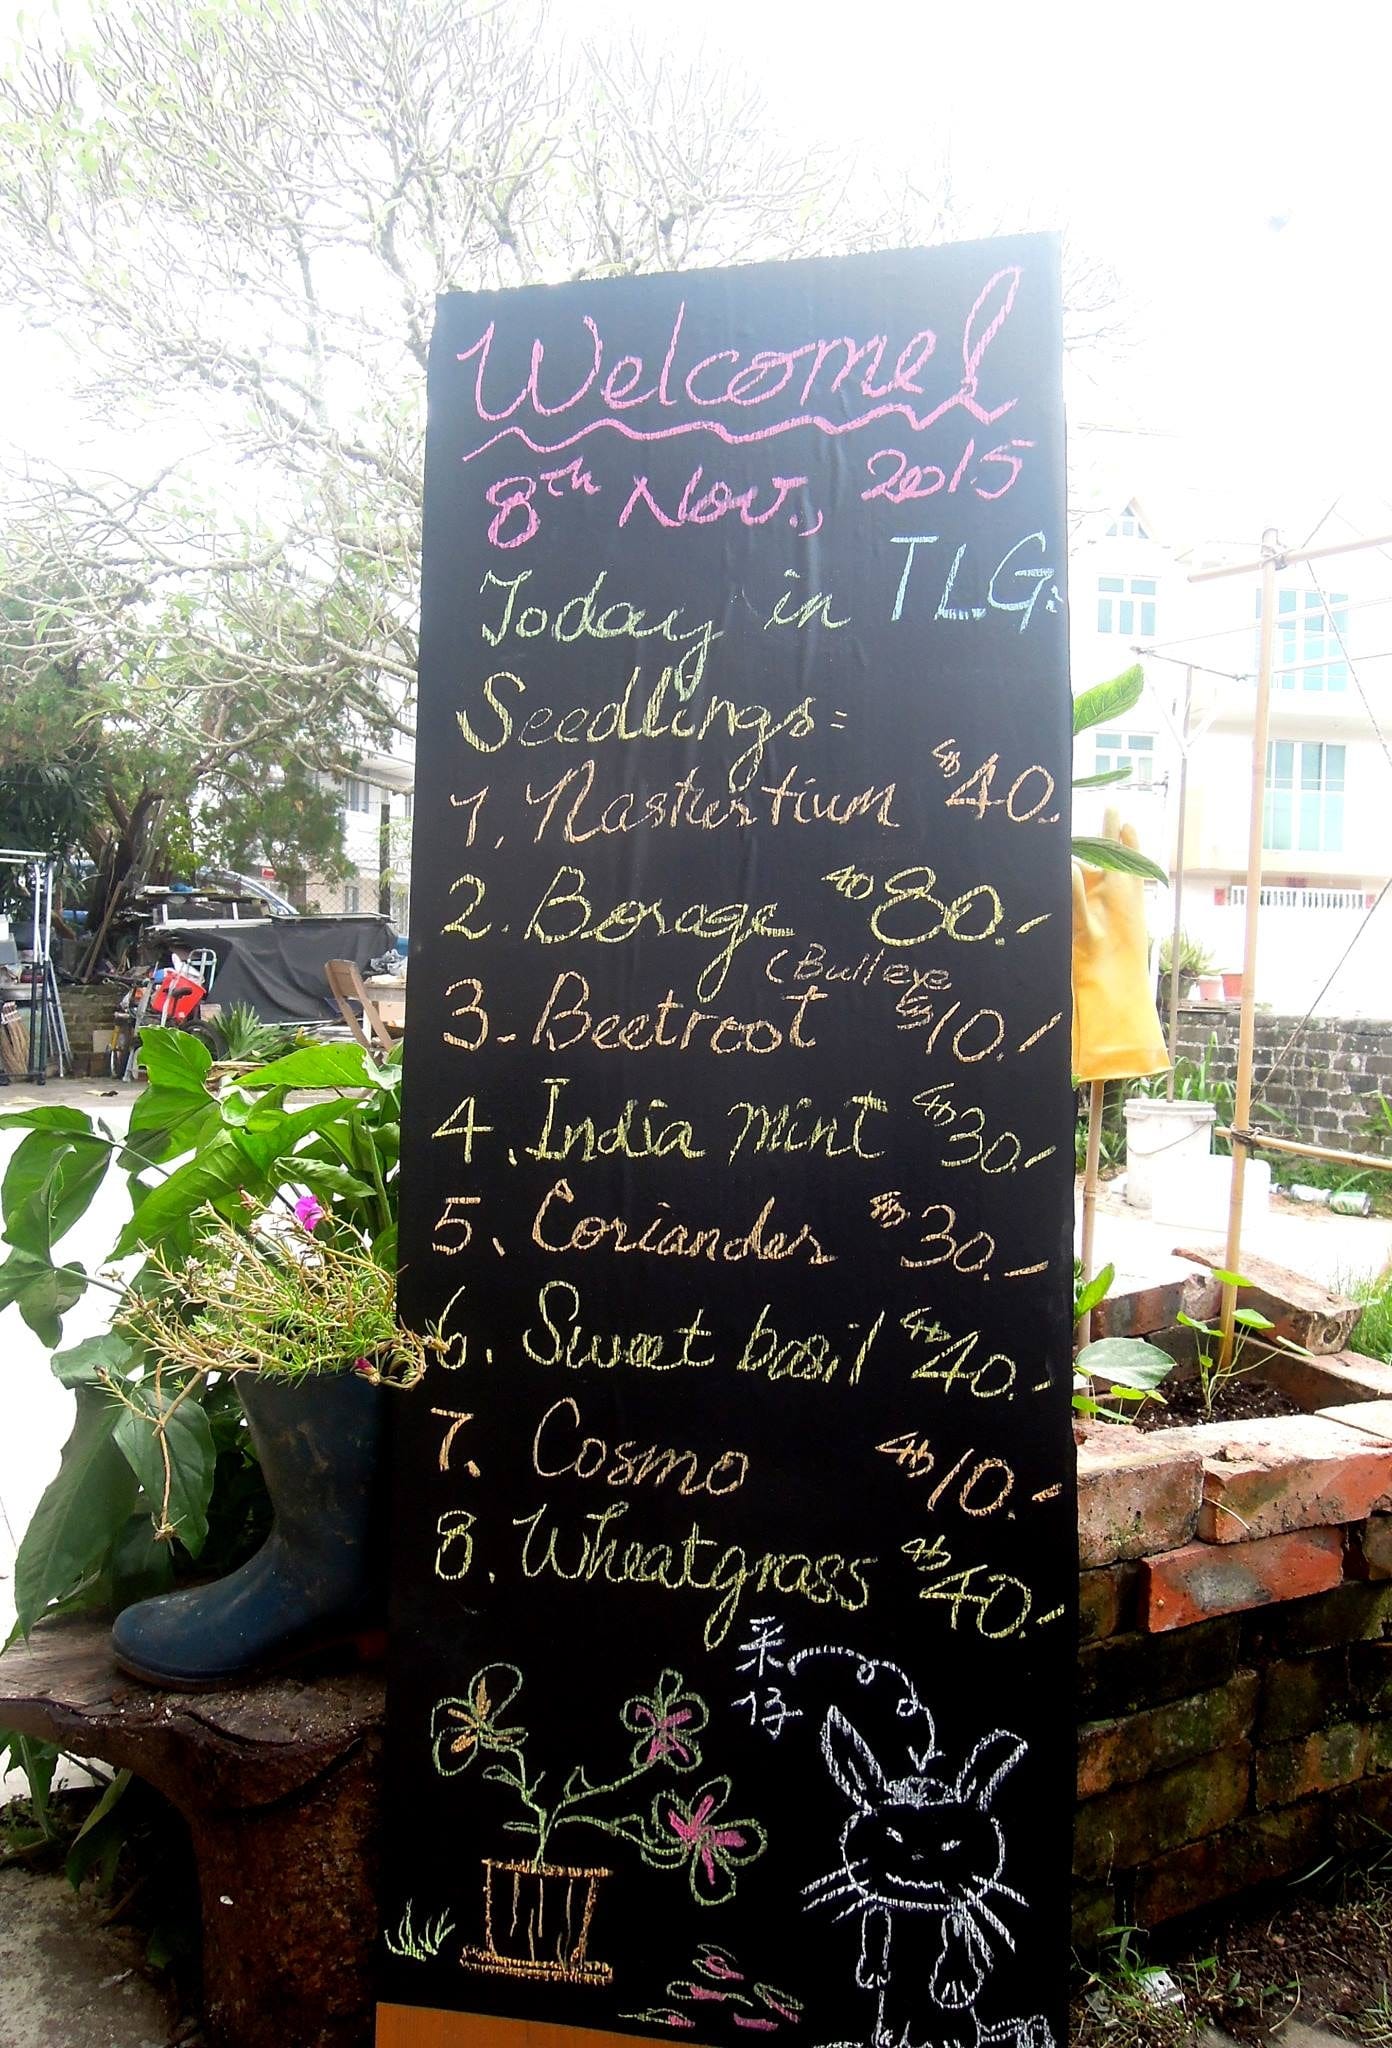 Welcome!
8th Nov., 2015
Today in TLG.
Seedlings=
1. Nasturtium $40.
2. Borage $80.-
3. Beetroot (Bulleye $10.-
4. India Mint $30.-
5. Coriander $30.-
6. Sweet basil $40.-
7. Cosmo $10.-
8. Wheatgrass $40.-
采
仔